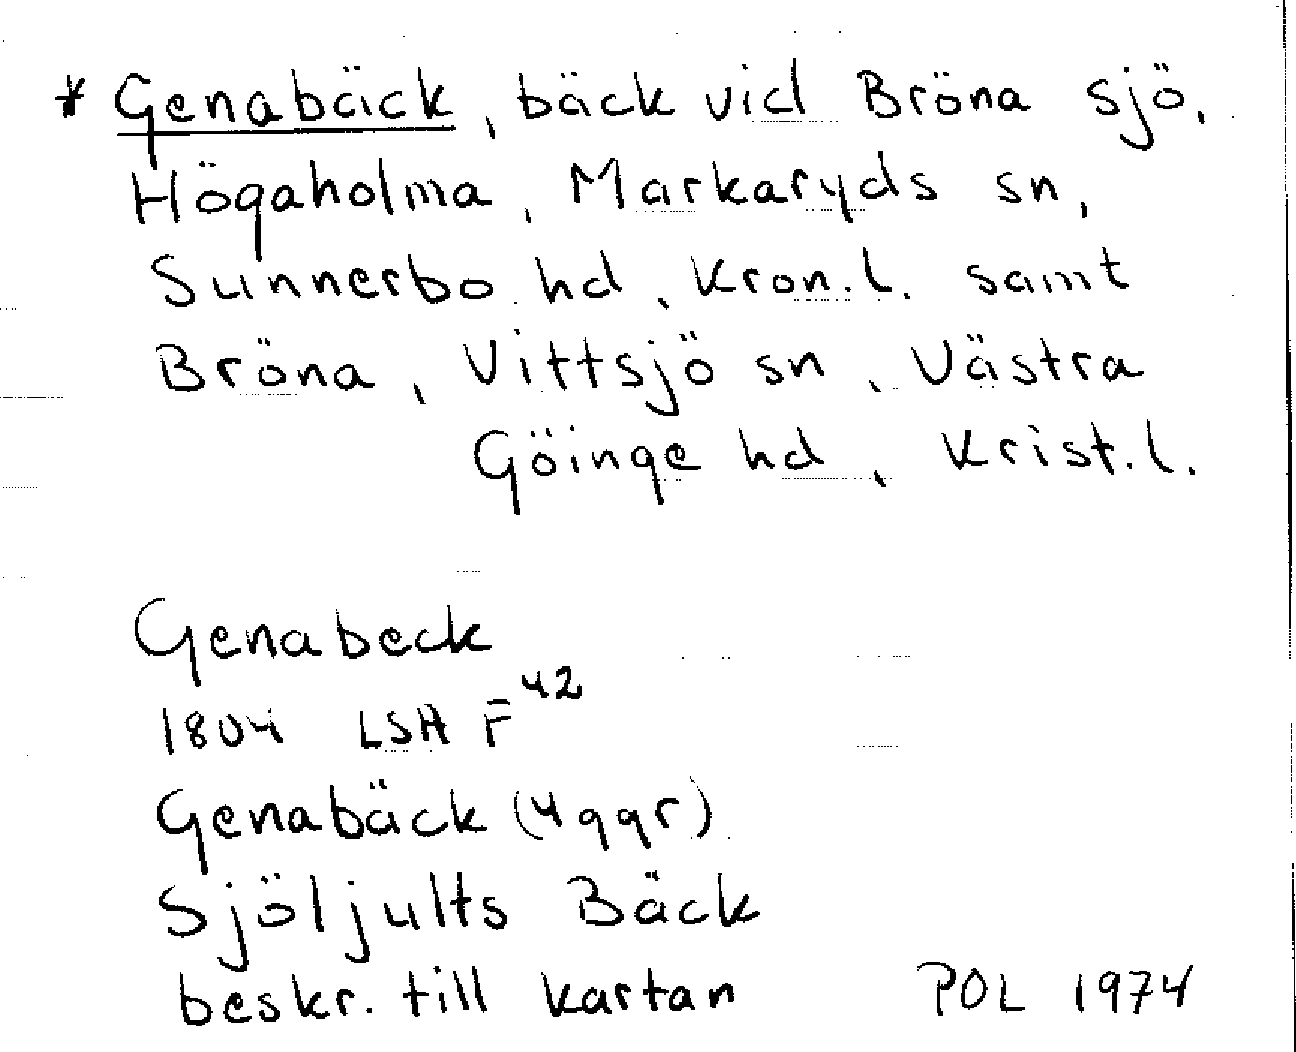 * Genabäck, bäck vid Bröna sjö,
Högaholma, Markaryds sn,
Sunnerbo hd, Kron.l. samt
Bröna, Vittsjö sn, Västra
Göinge hd, Krist.l.
Genabeck
1804 LSH F 42
Genabäck (4 ggr)
Sjöljults Bäck
beskr. till kartan POL 1974